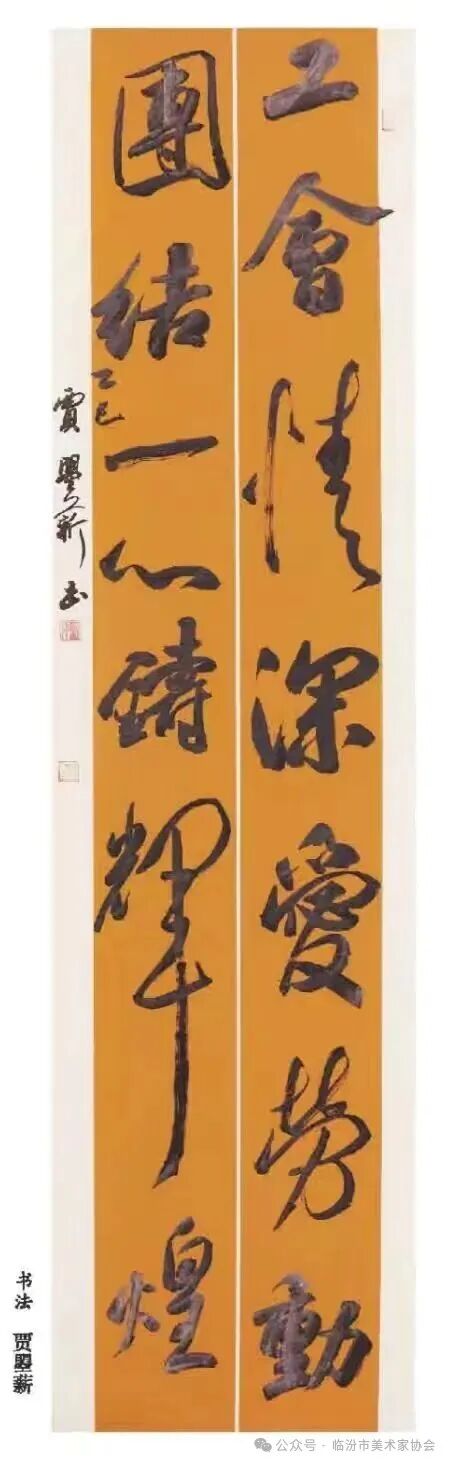 工會情深愛勞動
團結一心鑄輝煌
乙巳
賈曌薪书
书法 贾曌薪
公众号 · 临汾市美术家协会